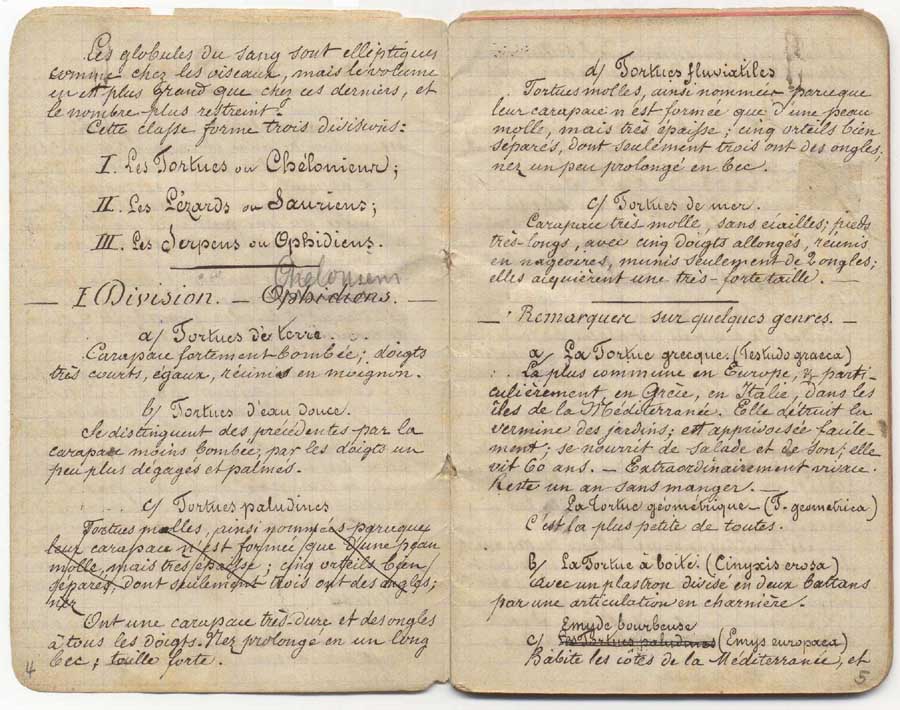 Les globules du sang sont elléptiques
comme chez les oiseaux, mais le volume
en est plus grand que chez ces derniers, et
le nombre plus restreint.
Cette classe forme trois divisions:
I. Les Tortues ou Chéloniens;
II. Les Lézards ou Sauriens;
III. Les Serpens ou Ophidiens.
Chéloniens
— I Division. — Ophidions. —
a) Tortues de terre.
Carapace fortement bombée; doigts
très courts, égaux, réunis en moignon.
b) Tortues d'eau douce.
Se distinguent des précédentes par la
carapace moins bombée, par les doigts un
peu plus dégagés et palmés.
c) Tortues paludines
Tortues molles, ainsi nommées parceque
leur carapace n'est formée que d'une peau
molle, mais très épaisse; cinq orteils bien
séparés, dont seulement trois ont des ongles;
nez
Ont une carapace très-dure et des ongles
à tous les doigts. Nez prolongé en un long
bec; taille forte.
4
d) Tortues fluviatiles
Tortues molles, ainsi nommées parceque
leur carapace n'est formée que d'une peau
molle, mais très épaisse; cinq orteils bien
séparés, dont seulement trois ont des ongles;
nez un peu prolongé en bec.
e) Tortues de mer.
Carapace très molle, sans écailles; pieds
très-longs, avec cinq doigts allongés, réunis
en nageoires, munis seulement de 2 ongles;
elles aquièrent une très-forte taille.
— Remarques sur quelques genres. —
a) La Tortue grecque. (Testudo graeca)
La plus commune en Europe, & parti-
culièrement, en Grèce, en Italie, dans les
îles de la Méditerranée. Elle détruit la
vermine des jardins; est apprivoisée facile-
ment; se nourrit de salade et de son; elle
vit 60 ans. — Extraordinairement vivace.
Reste un an sans manger. —
La Tortue géométrique — (T. geometrica)
C'est la plus petite de toutes.
b) La Tortue à boite. (Cinyxis erosa)
Avec un plastron divisé en deux battans
par une articulation en charnière.
Emyde bourbeuse
c) Les Tortues paludines (Emys europaea)
Habite les côtes de la Méditerranée, et
5